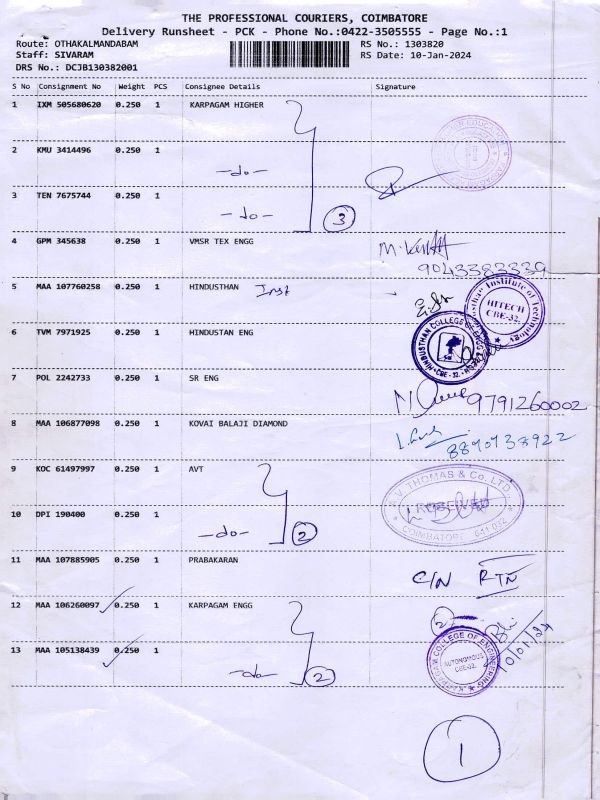 THE PROFESSIONAL COURIERS, COIMBATORE
Delivery Runsheet - PCK - Phone No.:0422-3505555 - Page No.:1
Route: OTHAKALMANDABAM RS No.: 1303820
Staff: SIVARAM RS Date: 10-Jan-2024
DRS No.: DCJB130382001
S No Consignment No Weight PCS Consignee Details Signature
1 IXM 505680620 0.250 1 KARPAGAM HIGHER
2 KMU 3414496 0.250 1 -do-
3 TEN 7675744 0.250 1 -do- 3
4 GPM 345638 0.250 1 VMSR TEX ENGG
9043383339
5 MAA 107760258 0.250 1 HINDUSTHAN Inst
Institute of Technology
HITECH
CBE-32.
6 TVM 7971925 0.250 1 HINDUSTAN ENG
HINDUSTHAN COLLEGE OF ENGG
CBE - 32.
7 POL 2242733 0.250 1 SR ENG
9791260002
8 MAA 106877098 0.250 1 KOVAI BALAJI DIAMOND
8890933922
9 KOC 61497997 0.250 1 AVT
A.V. THOMAS & Co. LTD.,
RECEIVED
COIMBATORE - 641 032
10 DPI 190400 0.250 1 -do- 2
11 MAA 107885905 0.250 1 PRABAKARAN
C/N RTN
12 MAA 106260097 0.250 1 KARPAGAM ENGG
2
13 MAA 105138439 0.250 1 -do- 2
KARPAGAM COLLEGE OF ENGINEERING
AUTONOMOUS
CBE-32.
10/01/24
1